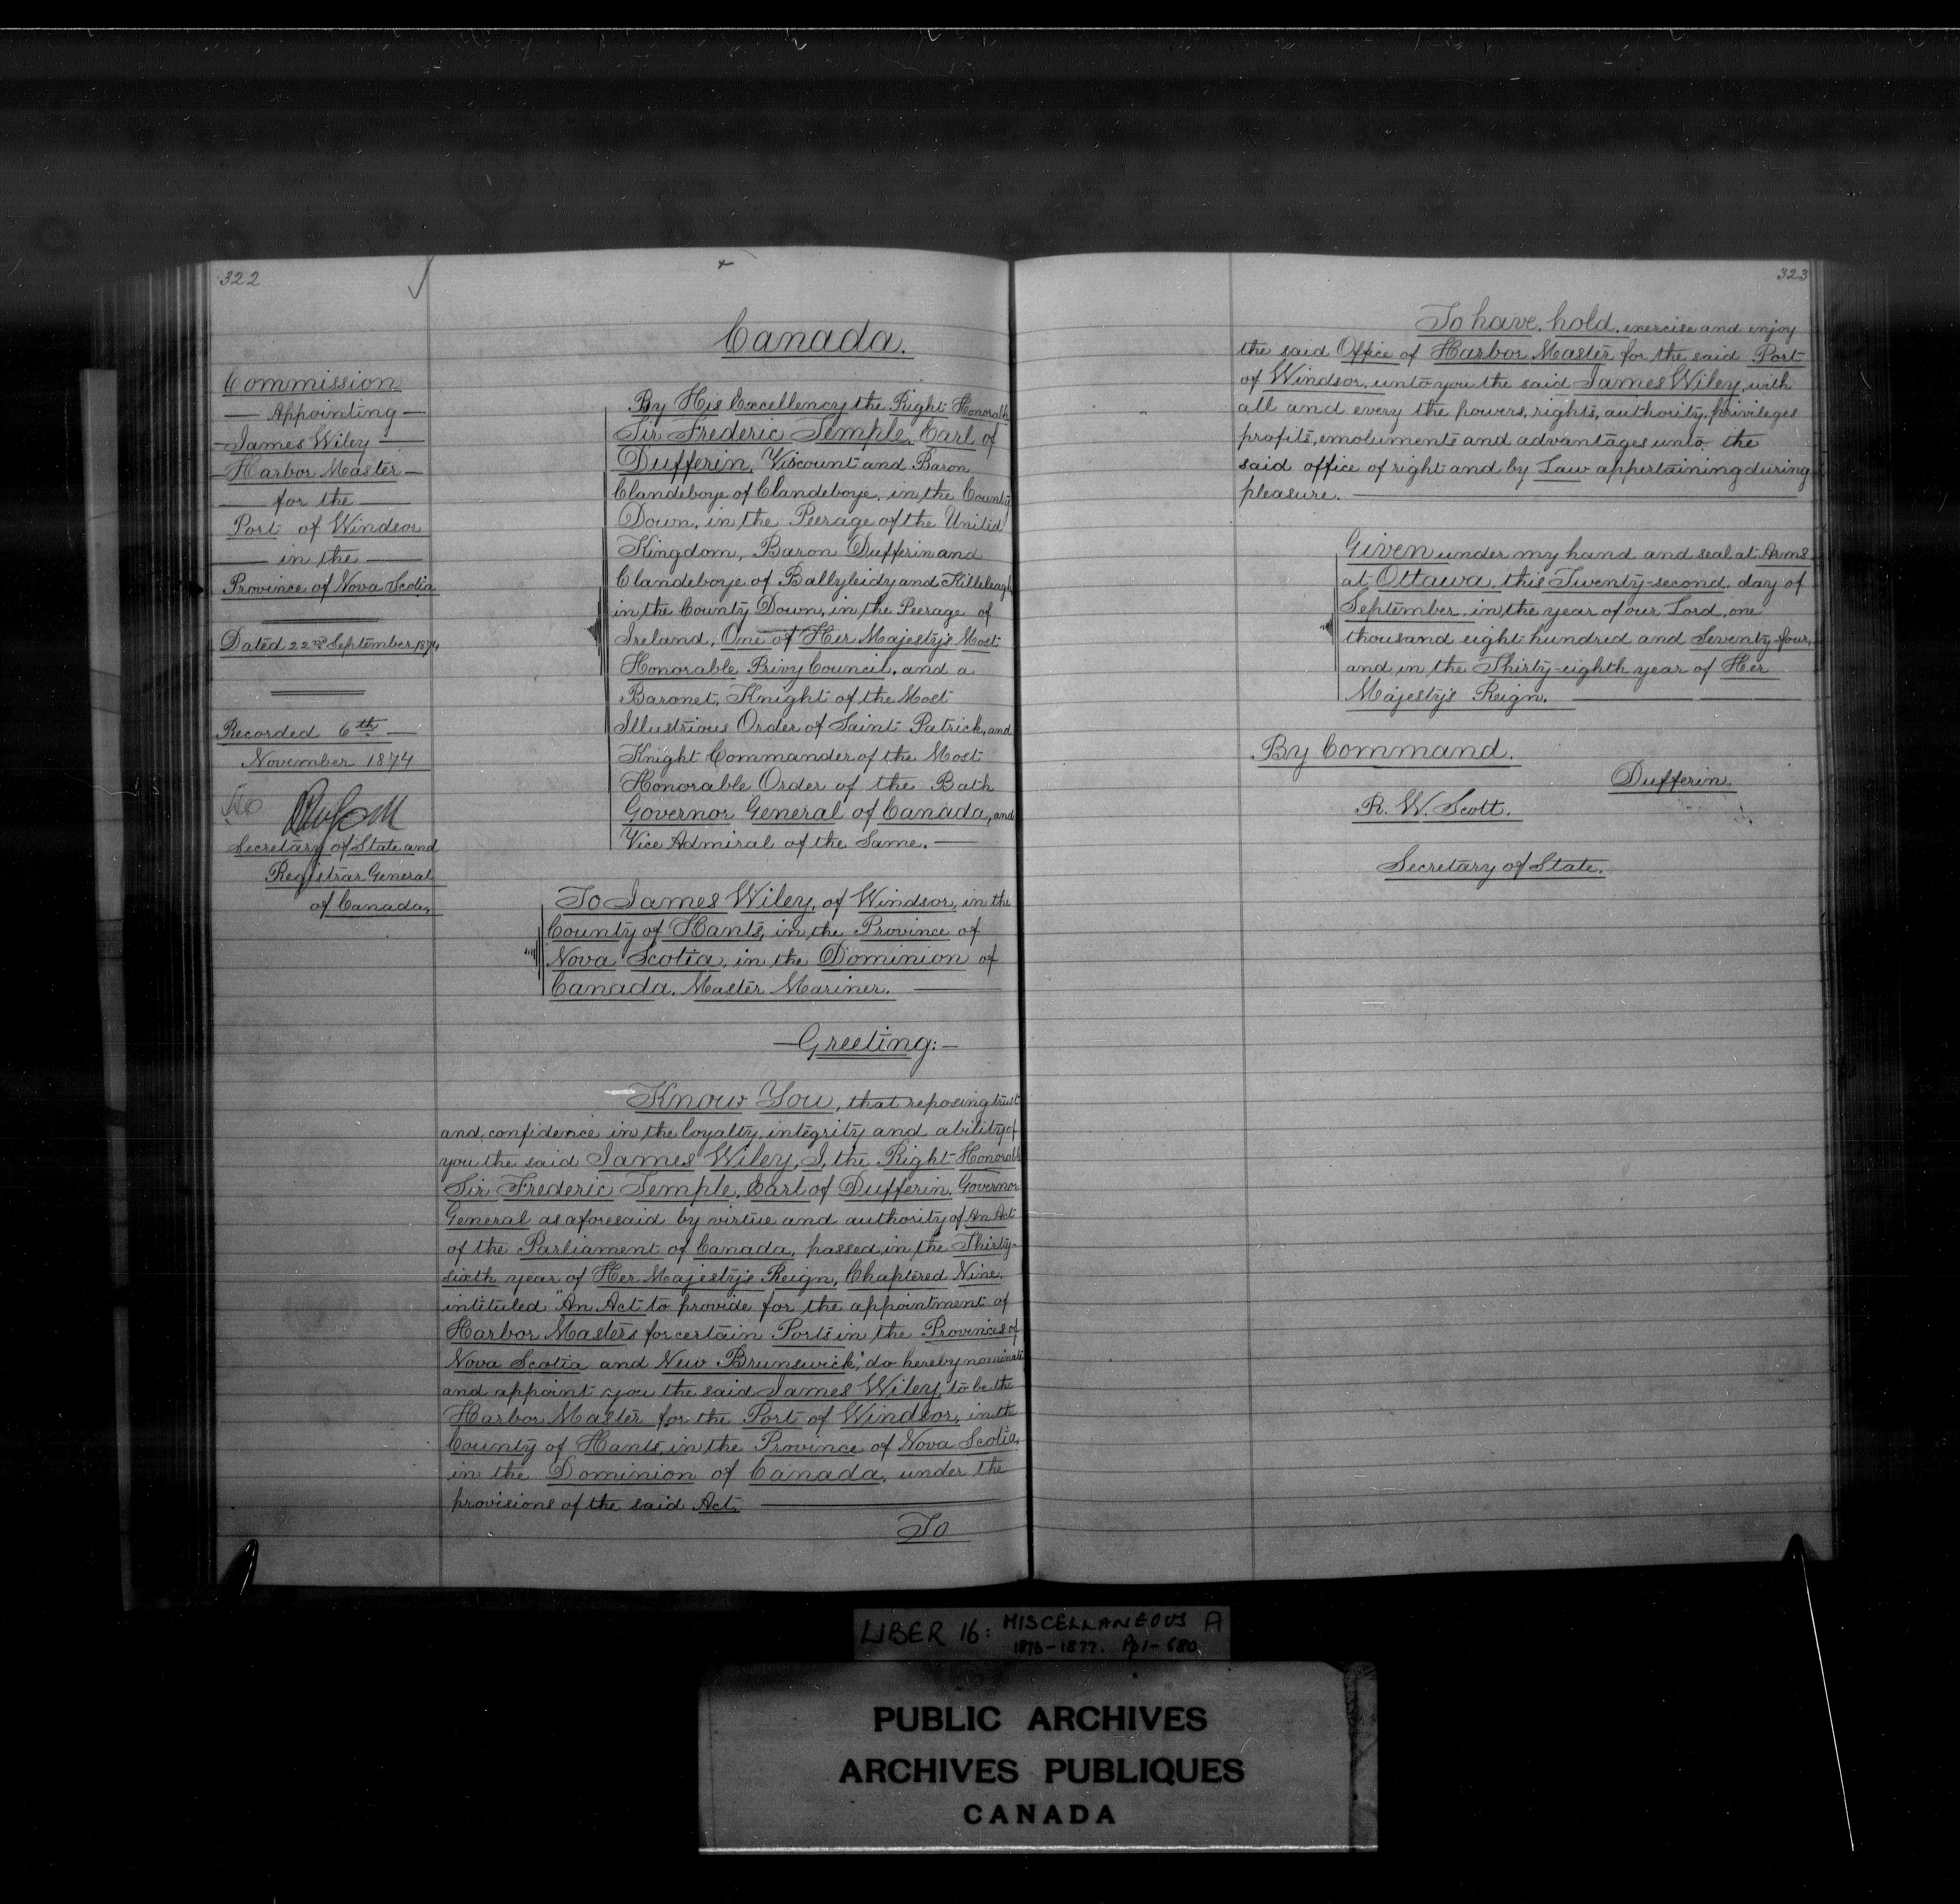 322
Commission
Appointing
James Wiley
Harbor Master
for the
Port of Windsor
in the
Province of Nova Scotia
Dated 22nd September 1874
Recorded 6th
November 1874
Secretary of State and
Registrar General
of Canada.
Canada.
By His Excellency the Right Honorable
Sir Frederic Temple, Earl of
Dufferin, Viscount and Baron
Clandeboye of Clandeboye, in the County
Down, in the Peerage of the United
Kingdom, Baron Dufferin and
Clandeboye of Ballyleidy and Killeleagh
in the County Down, in the Peerage of
Ireland, One of Her Majesty's Most
Honorable Privy Council, and a
Baronet, Knight of the Most
Illustrious Order of Saint Patrick, and
Knight Commander of the Most
Honorable Order of the Bath
Governor General of Canada, and
Vice Admiral of the Same.
To James Wiley, of Windsor, in the
County of Hants, in the Province of
Nova Scotia, in the Dominion of
Canada, Master Mariner.
Greeting:
Know You, that reposing trust
and confidence in the loyalty, integrity and ability of
you the said James Wiley, I, the Right Honorable
Sir Frederic Temple, Earl of Dufferin, Governor
General as aforesaid by virtue and authority of An Act
of the Parliament of Canada, passed in the Thirty-
sixth year of Her Majesty's Reign, Chaptered Nine,
intituled "An Act to provide for the appointment of
Harbor Masters for certain Ports in the Provinces of
Nova Scotia and New Brunswick," do hereby nominate
and appoint you the said James Wiley, to be the
Harbor Master for the Port of Windsor, in the
County of Hants, in the Province of Nova Scotia,
in the Dominion of Canada, under the
provisions of the said Act.
To
323
To have, hold, exercise and enjoy
the said Office of Harbor Master for the said Port
of Windsor, unto you the said James Wiley, with
all and every the powers, rights, authority, privileges
profits, emoluments and advantages unto the
said office of right and by Law appertaining during
pleasure.
Given under my hand and seal at Arms
at Ottawa, this Twenty-second day of
September, in the year of our Lord, one
thousand eight hundred and Seventy-four,
and in the Thirty-eighth year of Her
Majesty's Reign.
By Command.
Dufferin.
R. W. Scott.
Secretary of State.
LIBER 16: MISCELLANEOUS A
1873-1877. Pp 1-680
PUBLIC ARCHIVES
ARCHIVES PUBLIQUES
CANADA